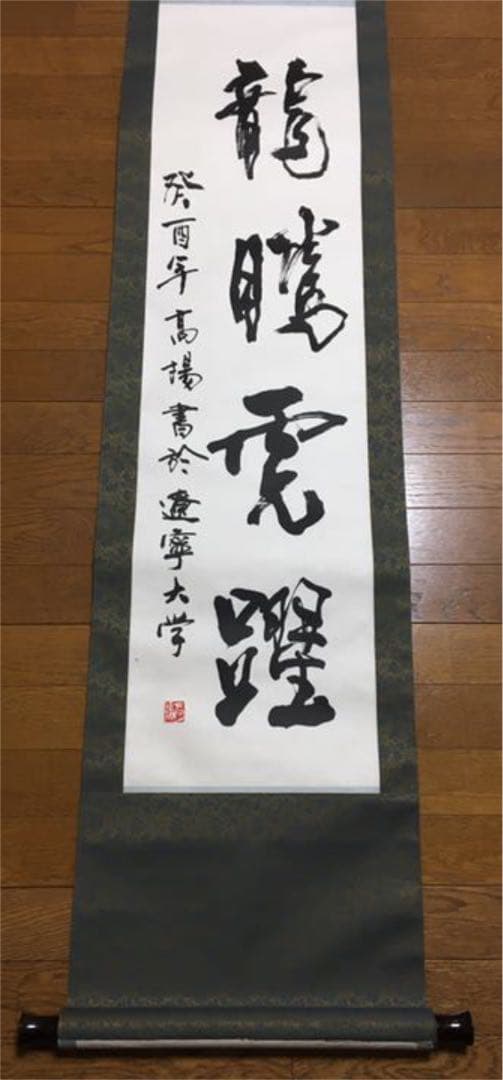 龍騰虎躍
癸酉年高揚書於遼寧大学